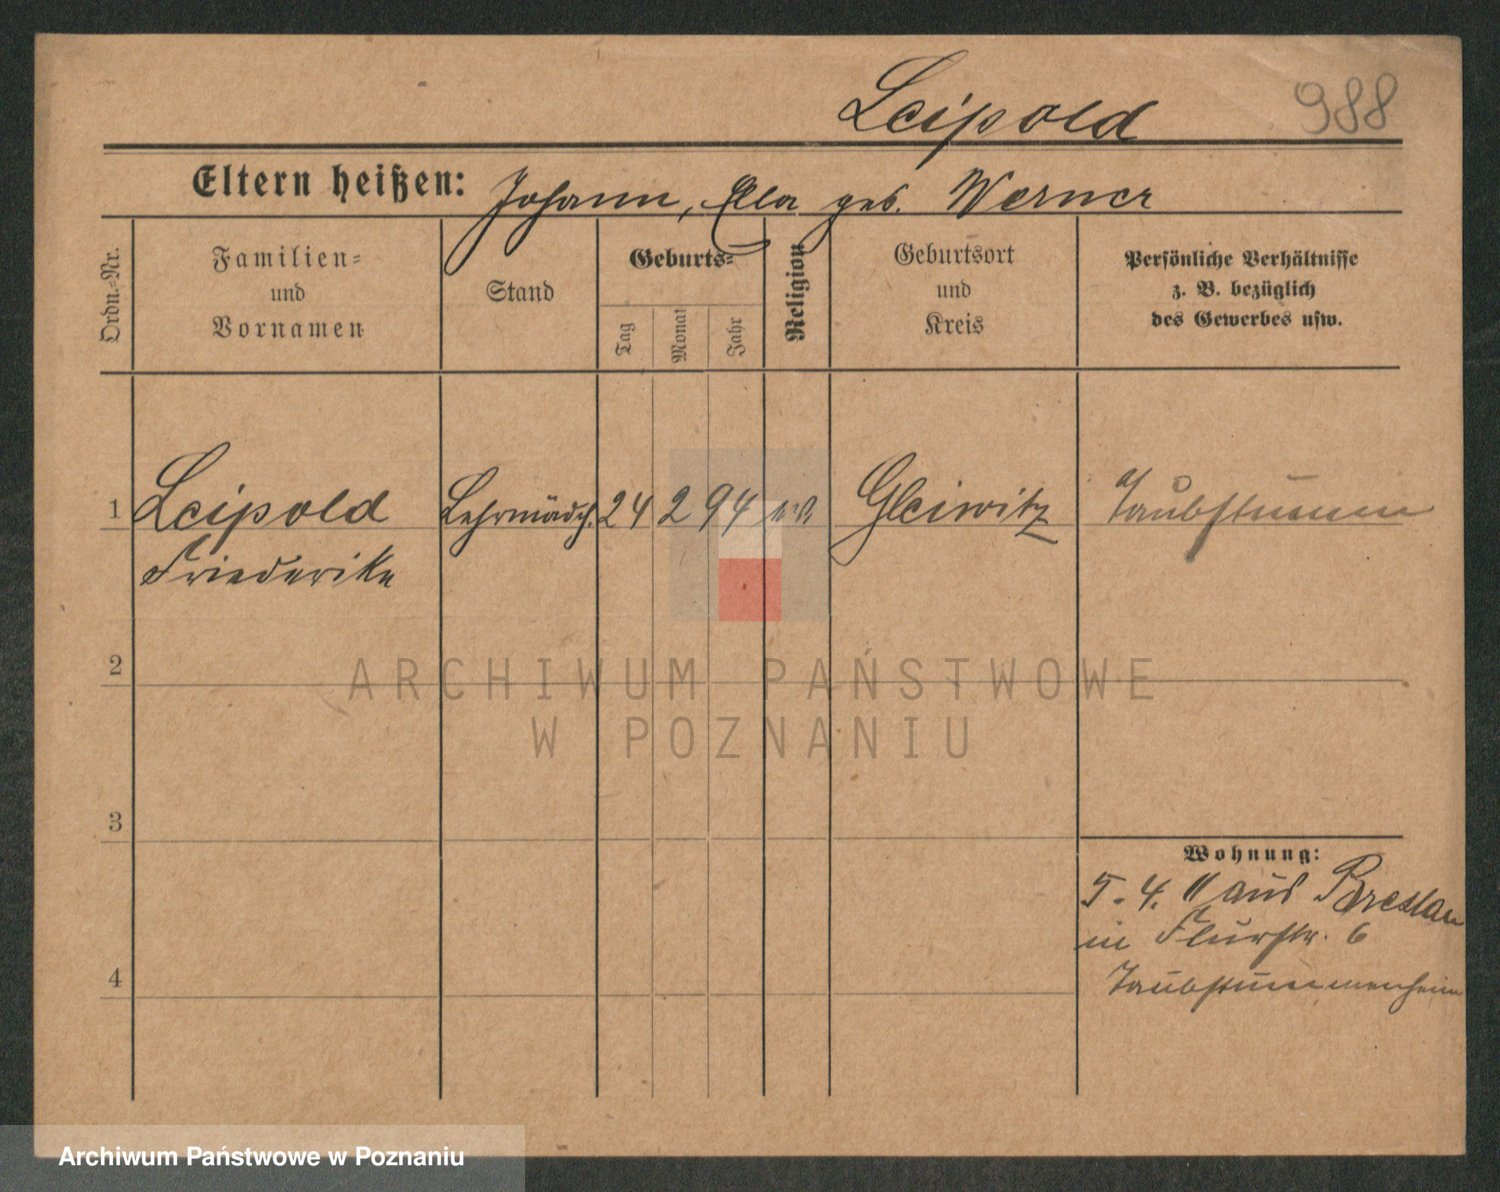 Leipold 988
Eltern heißen: Johann, Ella geb. Werner
Ordn.-Nr.
Familien-
und
Vornamen
Stand
Geburts-
Tag
Monat
Jahr
Religion
Geburtsort
und
Kreis
Persönliche Verhältnisse
z. B. bezüglich
des Gewerbes usw.
1 Leipold Lehrmädch. 24 2 94 ev. Gleiwitz Taubstumm
Friederike
2
ARCHIWUM PAŃSTWOWE
W POZNANIU
3
Wohnung:
5. 4. 11 aus Breslau
in Flurstr. 6
4 Taubstummenheim
Archiwum Państwowe w Poznaniu